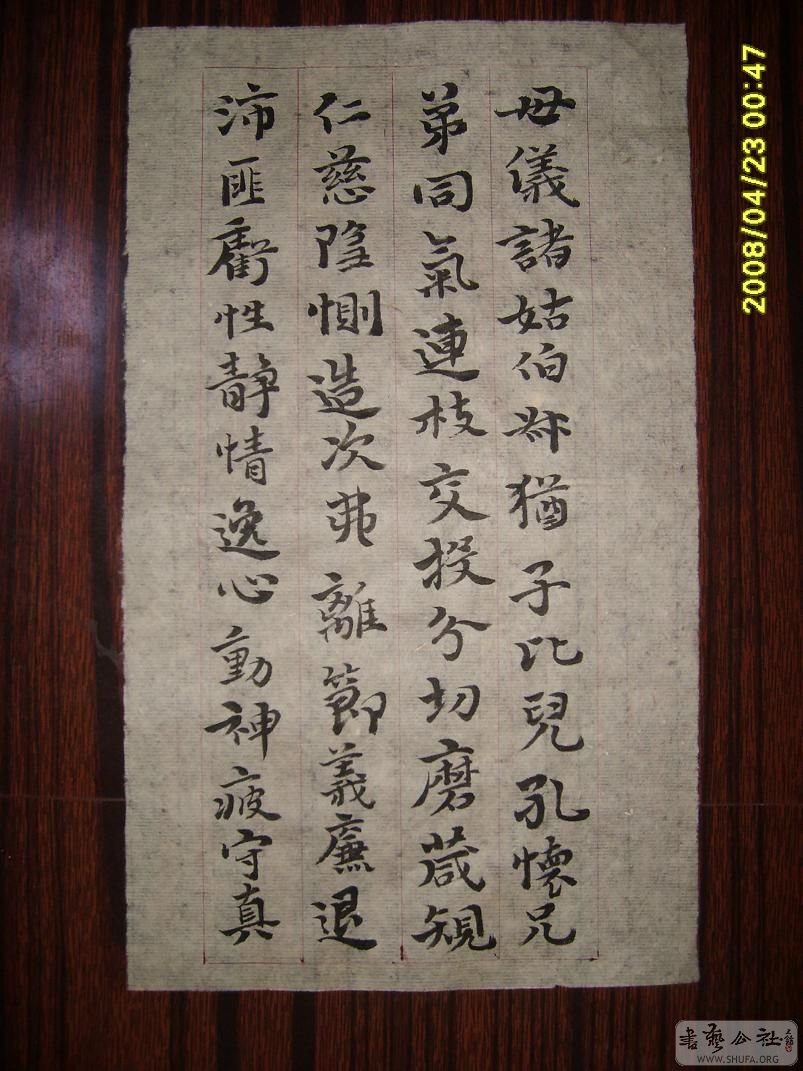 母儀諸姑伯叔猶子比兒孔懷兄
弟同氣連枝交投分切磨葴規
仁慈隱惻造次弗離節義廉退
沛匪虧性静情逸心動神疲守真
2008/04/23 00:47
書藝公社
WWW.SHUFA.ORG